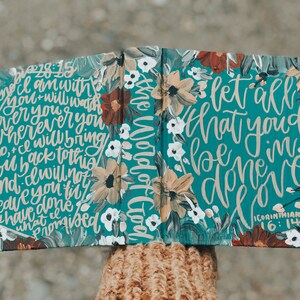 28:15
am with
you + will watch
over you
wherever you
go & will bring
you back to this
land. I will not
leave you until
have done
promised
the Word of God
let all
that you do
be in
done
love
1 CORINTHIANS
16:14